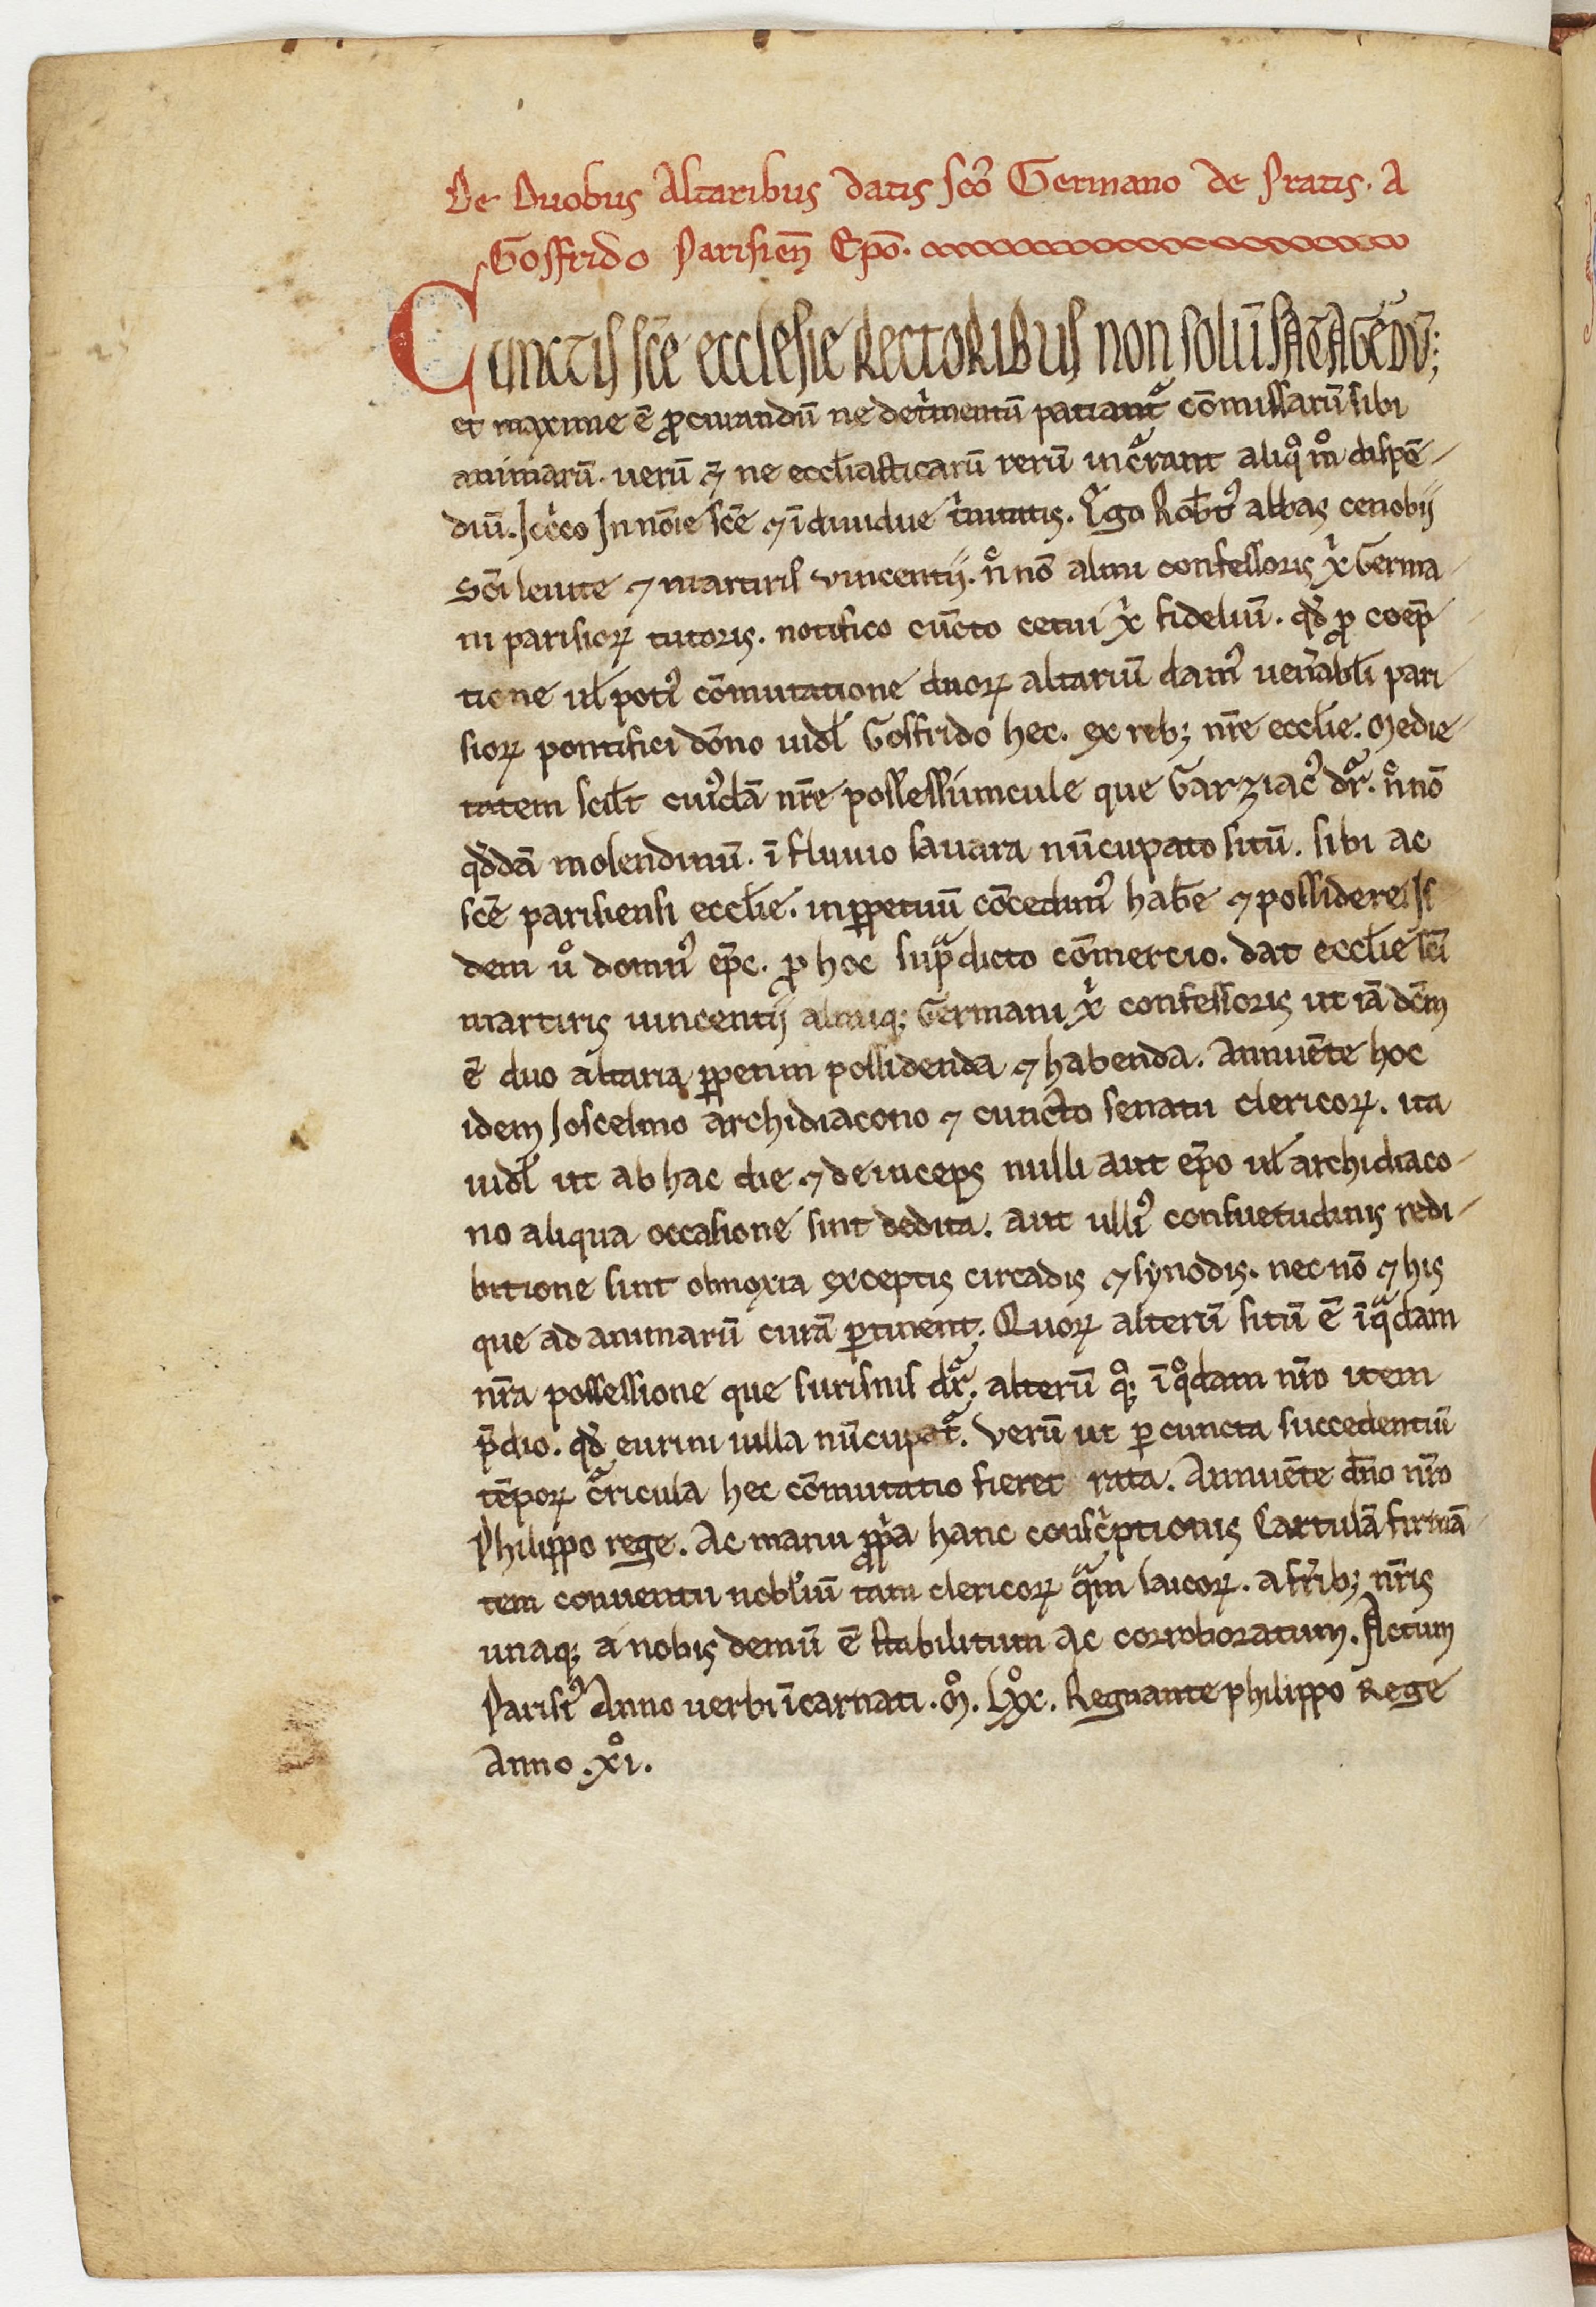 De Duobus Altaribus datis sc̄o Germano de Pratis. A
Gosfrido Parisien̄ Ep̄o.
Cunctis sc̄e ecclesie Rectoribus non solū satagendū;
et maxime ē ꝓcurandū ne det͛mentū patiant᷑ cōmissarū sibi
animarū. verū ⁊ ne eccl̄iasticarū rerū incᷓrant aliqͦ mͦ dispē-
diū. Icͥco In nōie sc̄e ⁊ īdiuidue tͥnitatis. Ego Rob̄tꝰ abbas cenobij
Sc̄i leuite ⁊ martiris vincentij. nͨnō almi confessoris xͥ Germa-
ni parisioꝝ tutoris. notifico cūcto cetui xͥ fidelium. qd̄ ꝓ coep̄-
tione ul̄ potiꝰ cōmutatione duoꝝ altariū damꝰ uen͛abl̄i pari-
sioꝝ pontifici dōno uidl̄ Gosfrido hec. ex reb; nr̄e eccl̄ie. Medie-
tatem scil̄t cuiꝰdā nr̄e possessiuncule que Garziacꝰ dr᷑. nͨnō
qd̄dā molendinū. ī fluuio sauara nūcupato sitū. sibi ac
sc̄e parisiensi eccl̄ie. inꝑpetuū cōcedimꝰ hab̄e ⁊ possidere. Is
dem uͦ domnꝰ ep̄c. ꝓ hoc supᷓdicto cōmercio. dat eccl̄ie sc̄i
martiris uincentij almiq; Germani xͥ confessoris ut iā dc̄m
ē duo altaria ꝑpetim possidenda ⁊ habenda. Annuēte hoc
idem Joscelino archidiacono ⁊ cuncto senatu clericoꝝ. ita
uidl̄ ut ab hac die ⁊ deinceps nulli aut ep̄o ul̄ archidiaco-
no aliqua occasione sint dedita. aut ulliꝰ consuetudinis redi-
bitione sint obnoxia exceptis circadis ⁊ synodis. nec nō ⁊ his
que ad animarū curā ꝑtinent. Quoꝝ alterū sitū ē ī qᷓdam
nr̄a possessione que surisnis dr᷑. alterū qͦꝫ ī qͦdam nr̄o item
p̄dio. qd̄ eurini uilla nūcupat᷑. Verū ut ꝑ cuncta succedentiū
tēpoꝝ cᷓricula hec cōmutatio fieret rata. Annuēte dn̄o nr̄o
Philippo rege. Ac manu ꝓpͥa hanc conscͥptionis Cartulā firmā-
tem conuentu nobl̄iū tam clericoꝝ qᷓm laicoꝝ. a fr̄ib; nr̄is
unaq; a nobis demū ē stabilitum Ac corroboratum. Actum
Parisiꝰ Anno verbi īcarnati. Mͦ. Lxͦx. Regnante philippo Rege
Anno. xͦi.